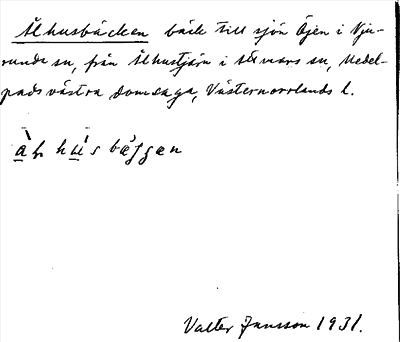 Ålhusbäcken bäck till sjön Öjen i Nju-
runda sn, från Ålhustjärn i Stvars sn, Medel-
pads västra domsaga, Västernorrlands l.
Valter Jansson 1931.